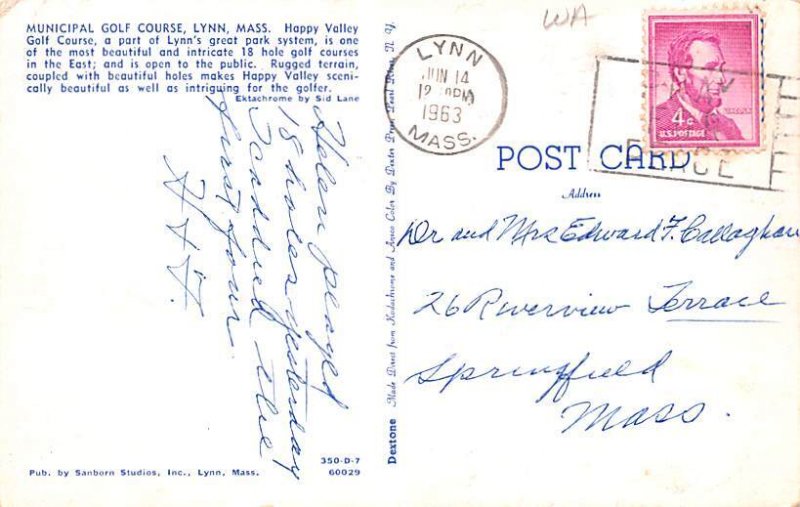 MUNICIPAL GOLF COURSE, LYNN, MASS. Happy Valley
Golf Course, a part of Lynn's great park system, is one
of the most beautiful and intricate 18 hole golf courses
in the East; and is open to the public. Rugged terrain,
coupled with beautiful holes makes Happy Valley sceni-
cally beautiful as well as intriguing for the golfer.
Ektachrome by Sid Lane
Helen played
18 holes yesterday
I caddied the
first four.
WA
LYNN
JUN 14
1963
MASS.
4c
U.S. POSTAGE
LINCOLN
POST CARD
Address
Dr and Mrs Edward F. Callaghan
26 Riverview Terrace
Springfield
Mass.
Dextone Made Direct from Kodachrome and Ansco Color By Dexter Press, Pearl River, N. Y.
350-D-7
60029
Pub. by Sanborn Studios, Inc., Lynn, Mass.